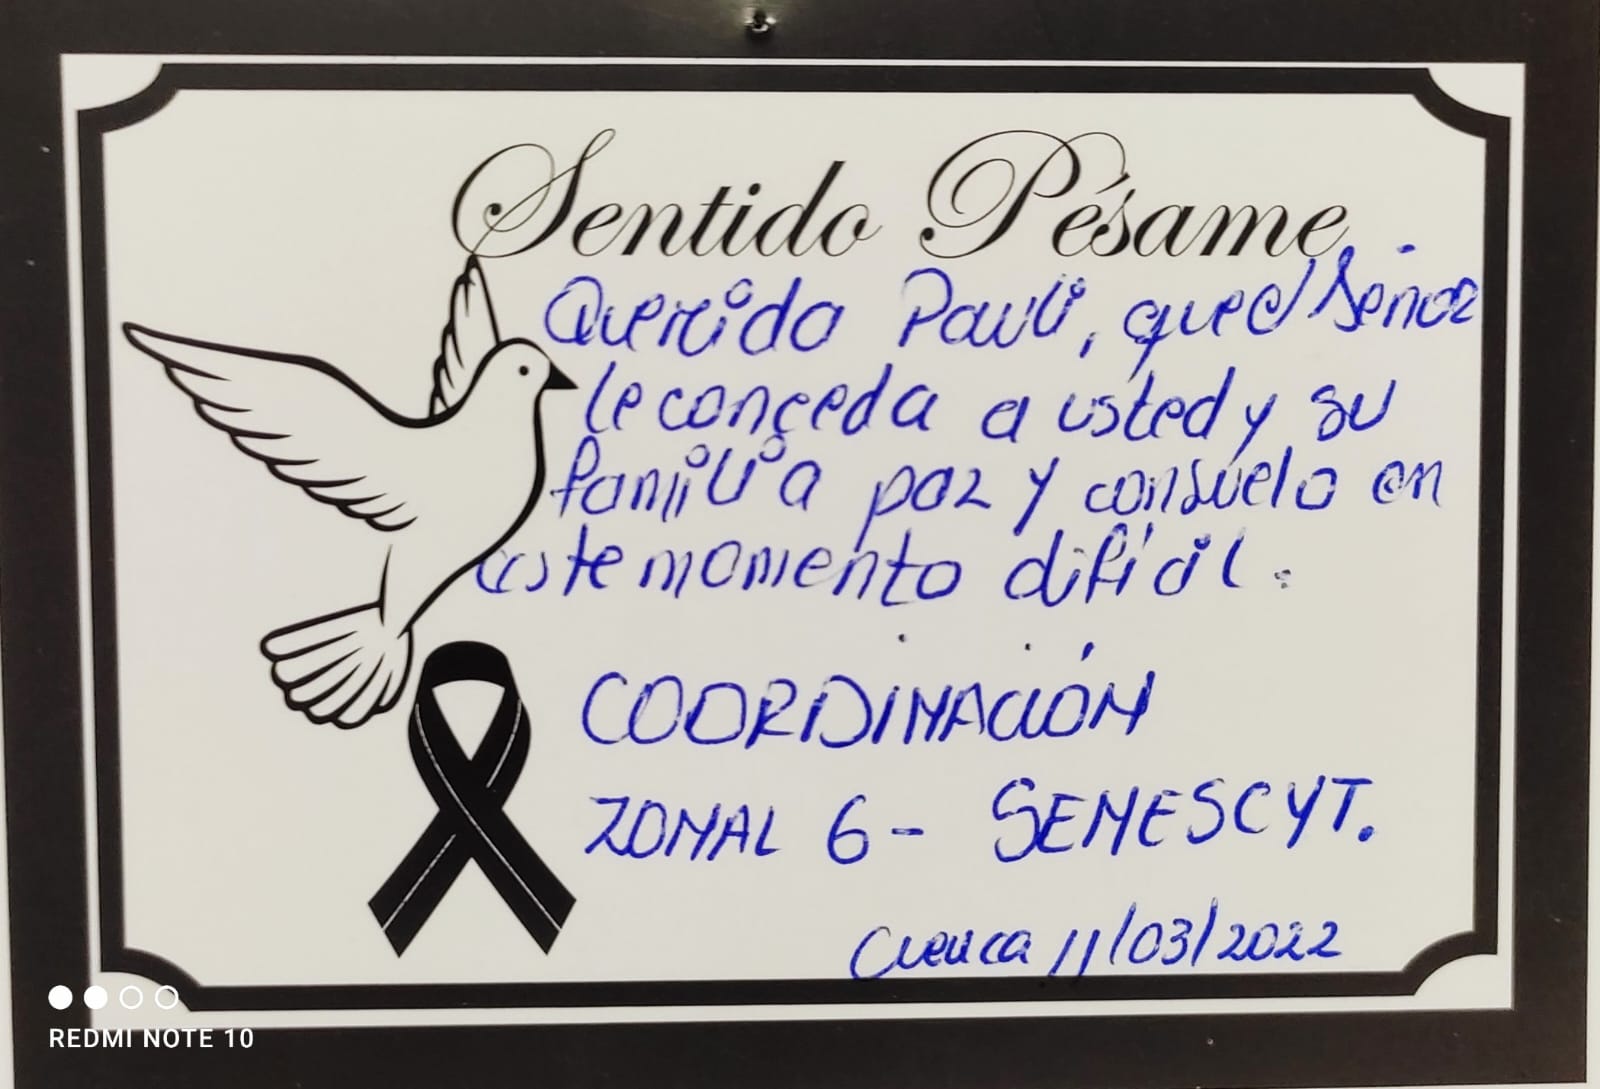 Sentido Pésame
Querido Pauli, que el Señor
le conceda a usted y su
familia paz y consuelo en
este momento difícil.
COORDINACIÓN
ZONAL 6 - SENESCYT.
Cuenca 11/03/2022
REDMI NOTE 10